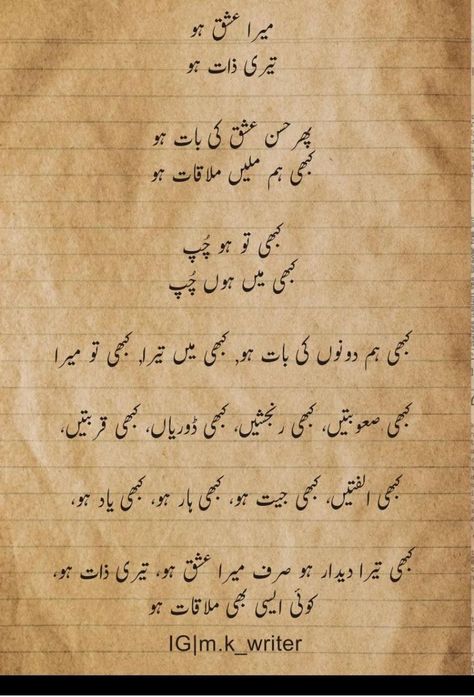 میرا عشق ہو
تیری ذات ہو
پھر حسن عشق کی بات ہو
کبھی ہم ملیں ملاقات ہو
کبھی تو ہو چُپ
کبھی میں ہوں چُپ
کبھی ہم دونوں کی بات ہو, کبھی میں تیرا, کبھی تو میرا
کبھی صعوبتیں، کبھی رنجشیں، کبھی دُوریاں، کبھی قربتیں،
کبھی الفتیں، کبھی جیت ہو، کبھی ہار ہو، کبھی یاد ہو،
کبھی تیرا دیدار ہو صرف میرا عشق ہو، تیری ذات ہو،
کوئی ایسی بھی ملاقات ہو
IG|m.k_writer